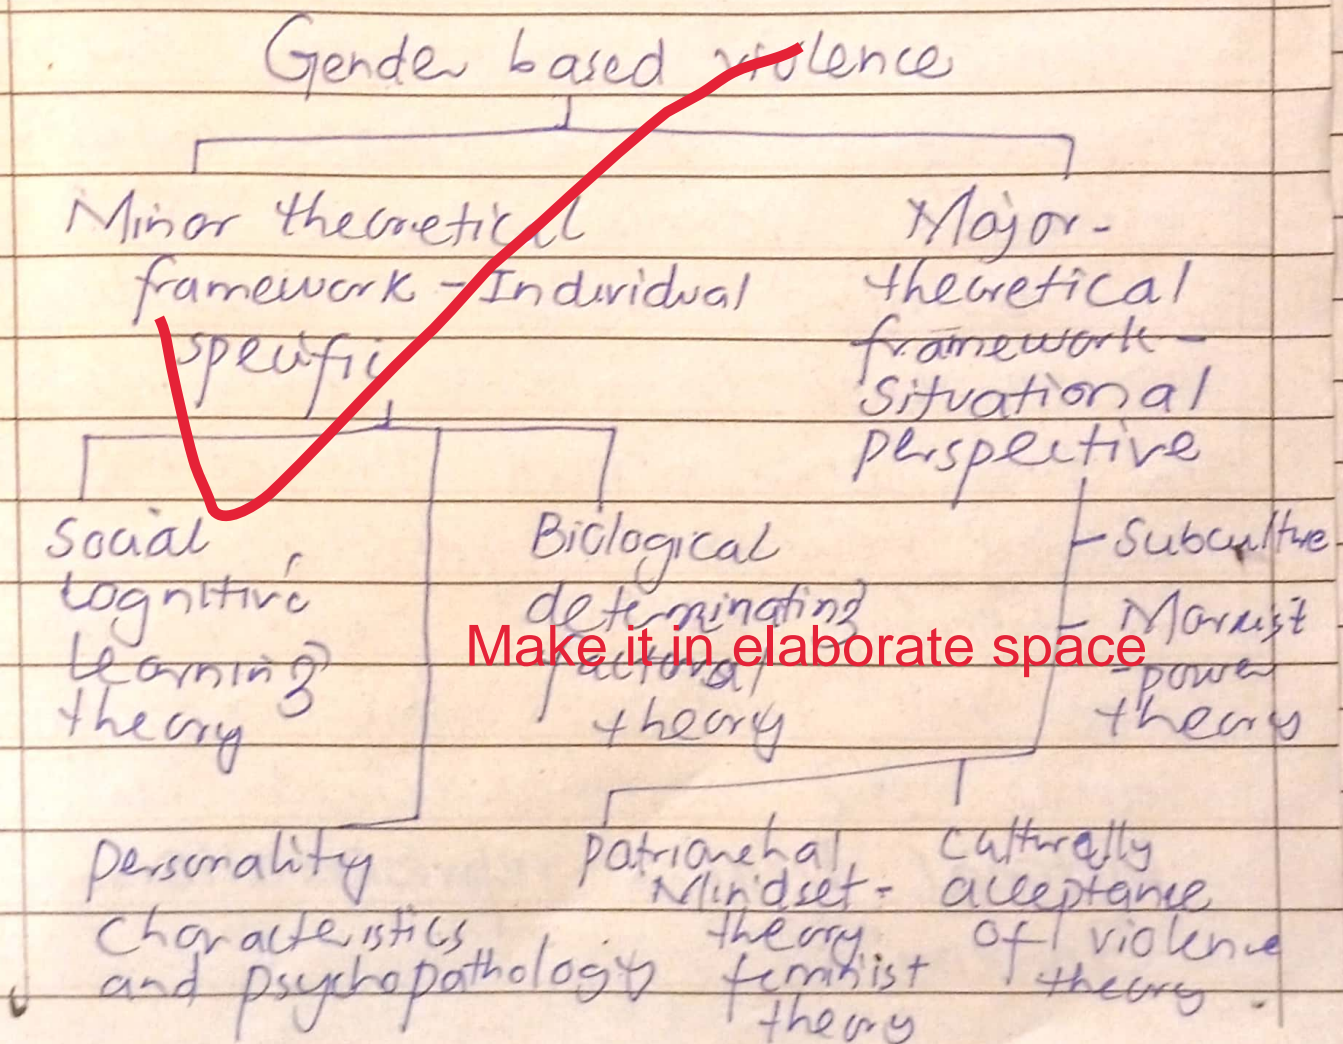 Gender based violence
Minor theoretical
framework - Individual
specific
Major -
theoretical
framework -
Situational
perspective
Social
Cognitive
Learning
theory
Biological
determinating
factoral
theory
- Subculture
- Marxist
- power
theory
Make it in elaborate space
personality
characteristics
and psychopathology
patriarchal
Mindset -
theory
feminist
theory
culturally
acceptance
of violence
theory